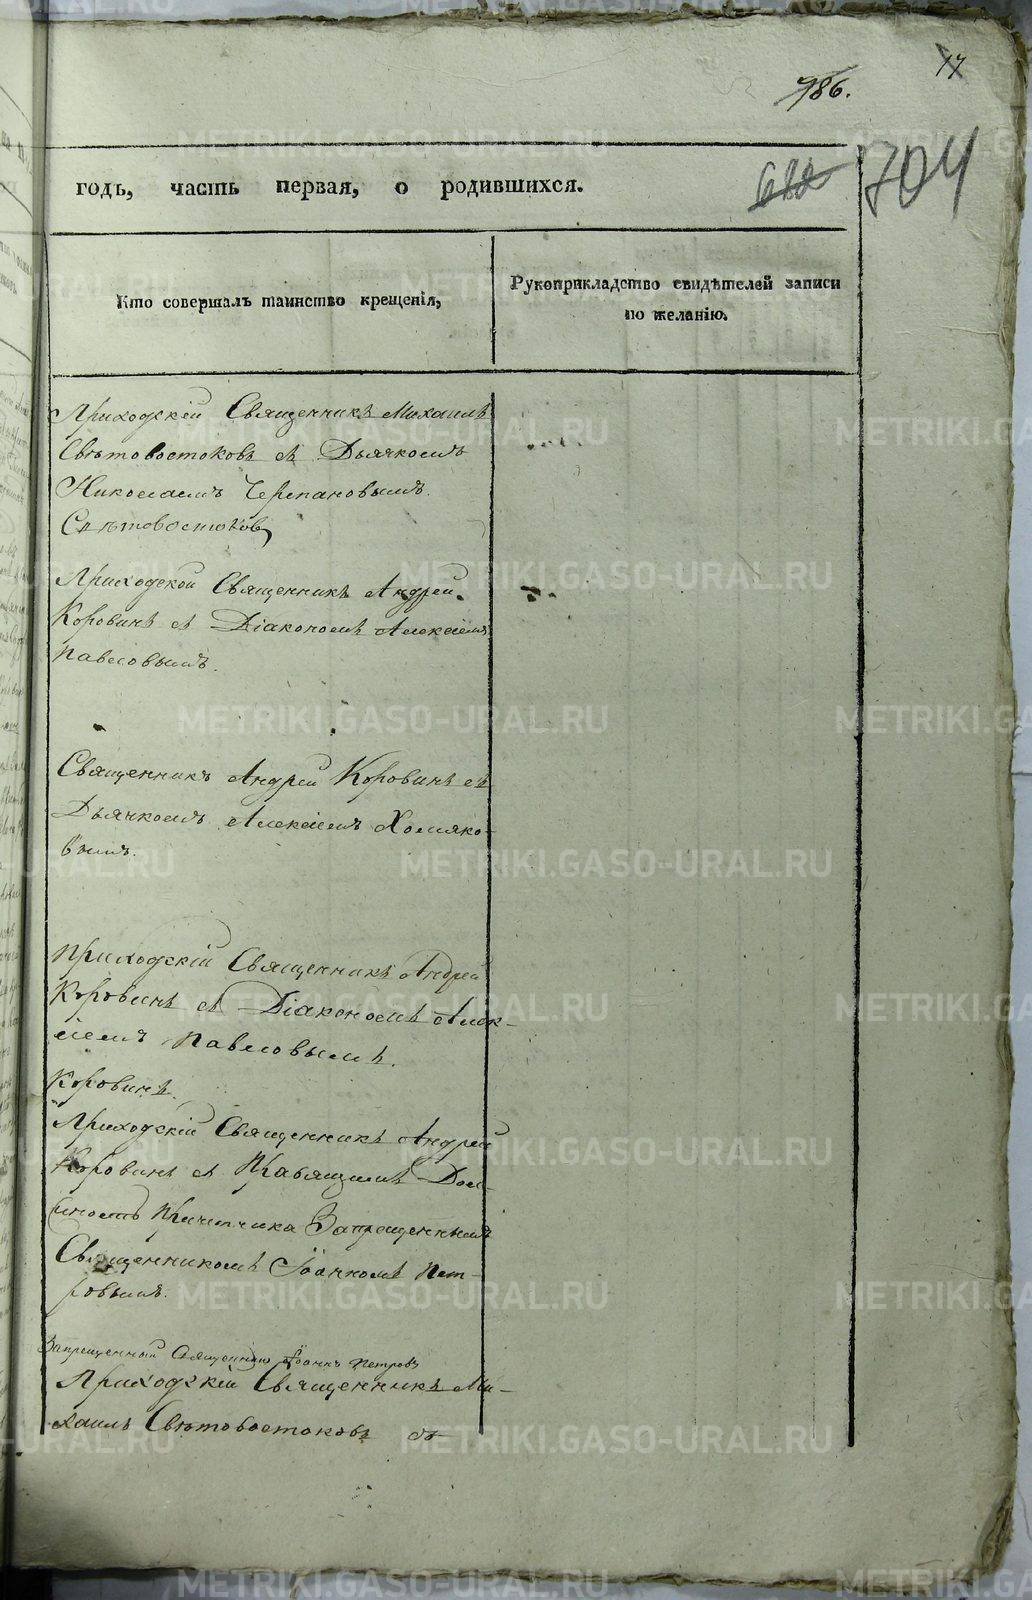 17
986.
682
704
годъ, часть первая, о родившихся.
Кто совершалъ таинство крещенія,
Рукоприкладство свидѣтелей записи
по желанію.
Приходскій Священникъ Михаилъ
Свѣтовостоковъ съ Дьячкомъ
Николаемъ Черепановымъ.
Свѣтовостоковъ
Приходской Священникъ Андрей
Коровинъ съ Діакономъ Алексѣемъ
Павловымъ.
Священникъ Андрей Коровинъ съ
Дьячкомъ Алексѣемъ Хомяко-
вымъ.
Приходскій Священникъ Андрей
Коровинъ съ Діакономъ Алек-
сѣемъ Павловымъ.
Коровинъ.
Приходскій Священникъ Андрей
Коровинъ съ Правящимъ Дол-
жность Причетчика Запрещеннымъ
Священникомъ Іоанномъ Пет-
ровымъ.
Запрещенный Священникъ Іоаннъ Петровъ
Приходскій Священникъ Ми-
хаилъ Свѣтовостоковъ съ
METRIKI.GASO-URAL.RU